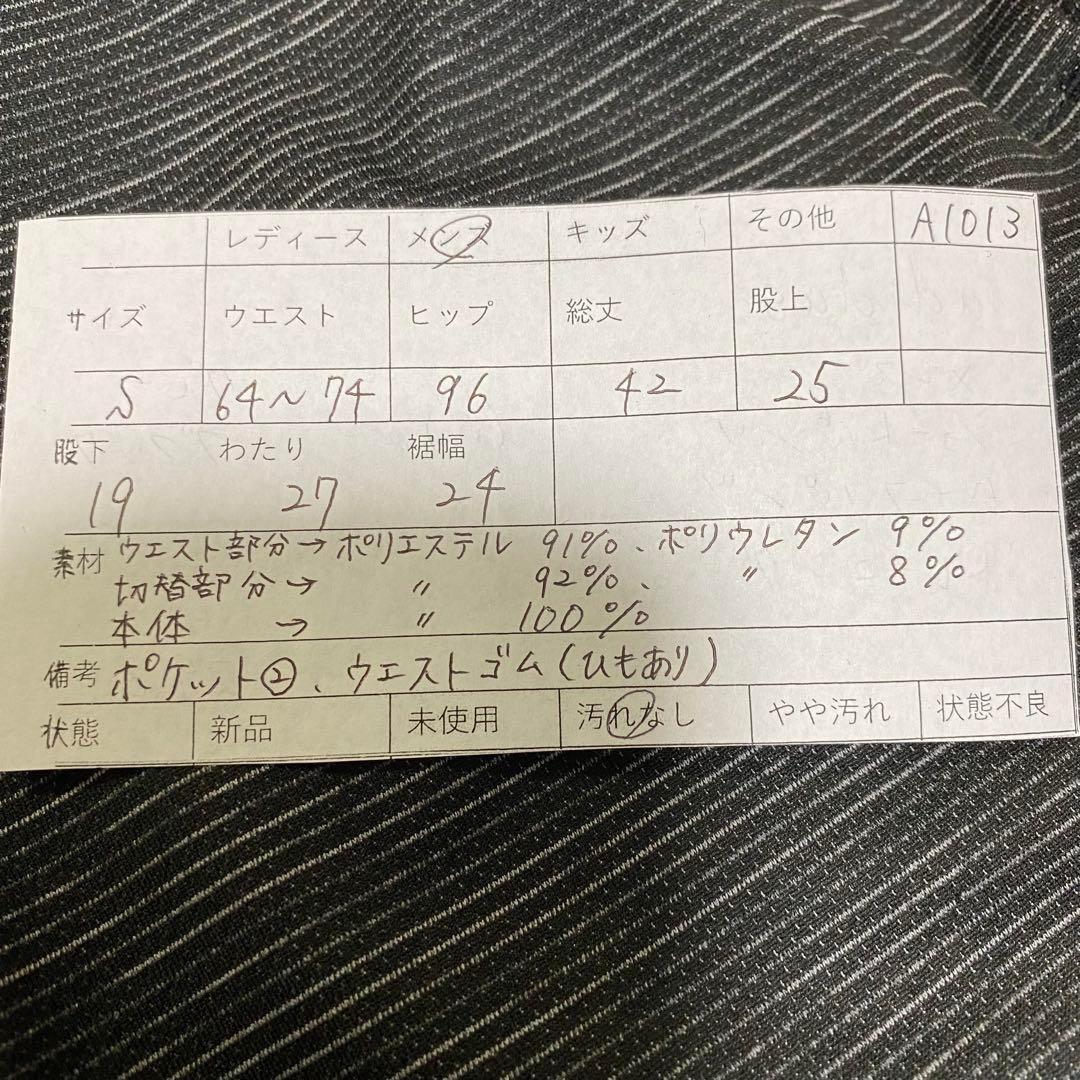 レディース メンズ キッズ その他 A1013
サイズ ウエスト ヒップ 総丈 股上
S 64~74 96 42 25
股下 わたり 裾幅
19 27 24
素材 ウエスト部分→ポリエステル 91%、ポリウレタン 9%
切替部分→ 〃 92%、 〃 8%
本体 → 〃 100%
備考 ポケット②、ウエストゴム(ひもあり)
状態 新品 未使用 汚れなし やや汚れ 状態不良